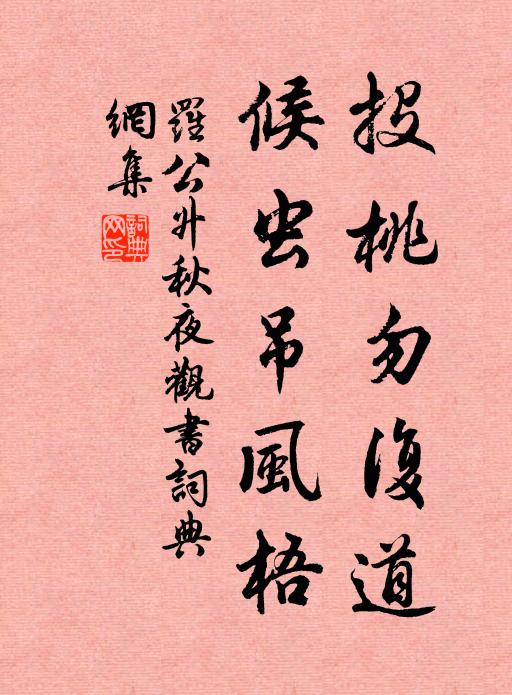 投桃勿復道
候虫吊風梧
羅公升秋夜觀書詞典
網集
詞典網印